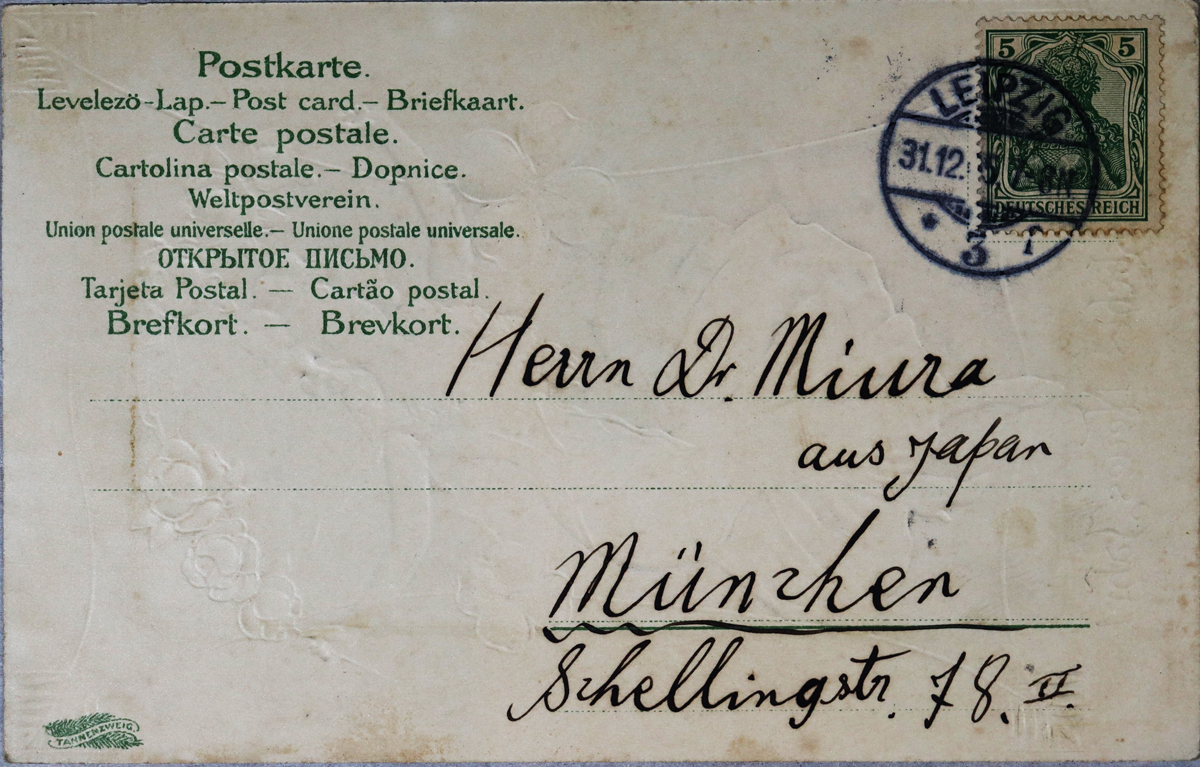 Postkarte.
Levelezö-Lap.– Post card.– Briefkaart.
Carte postale.
Cartolina postale.– Dopnice.
Weltpostverein.
Union postale universelle.– Unione postale universale.
ОТКРЫТОЕ ПИСЬМО.
Tarjeta Postal. — Cartão postal.
Brefkort. — Brevkort.
5 5
DEUTSCHES REICH
LEIPZIG
31.12.
3
Herrn Dr. Miura
aus Japan
München
Schellingstr. 78. II.
TANNENZWEIG